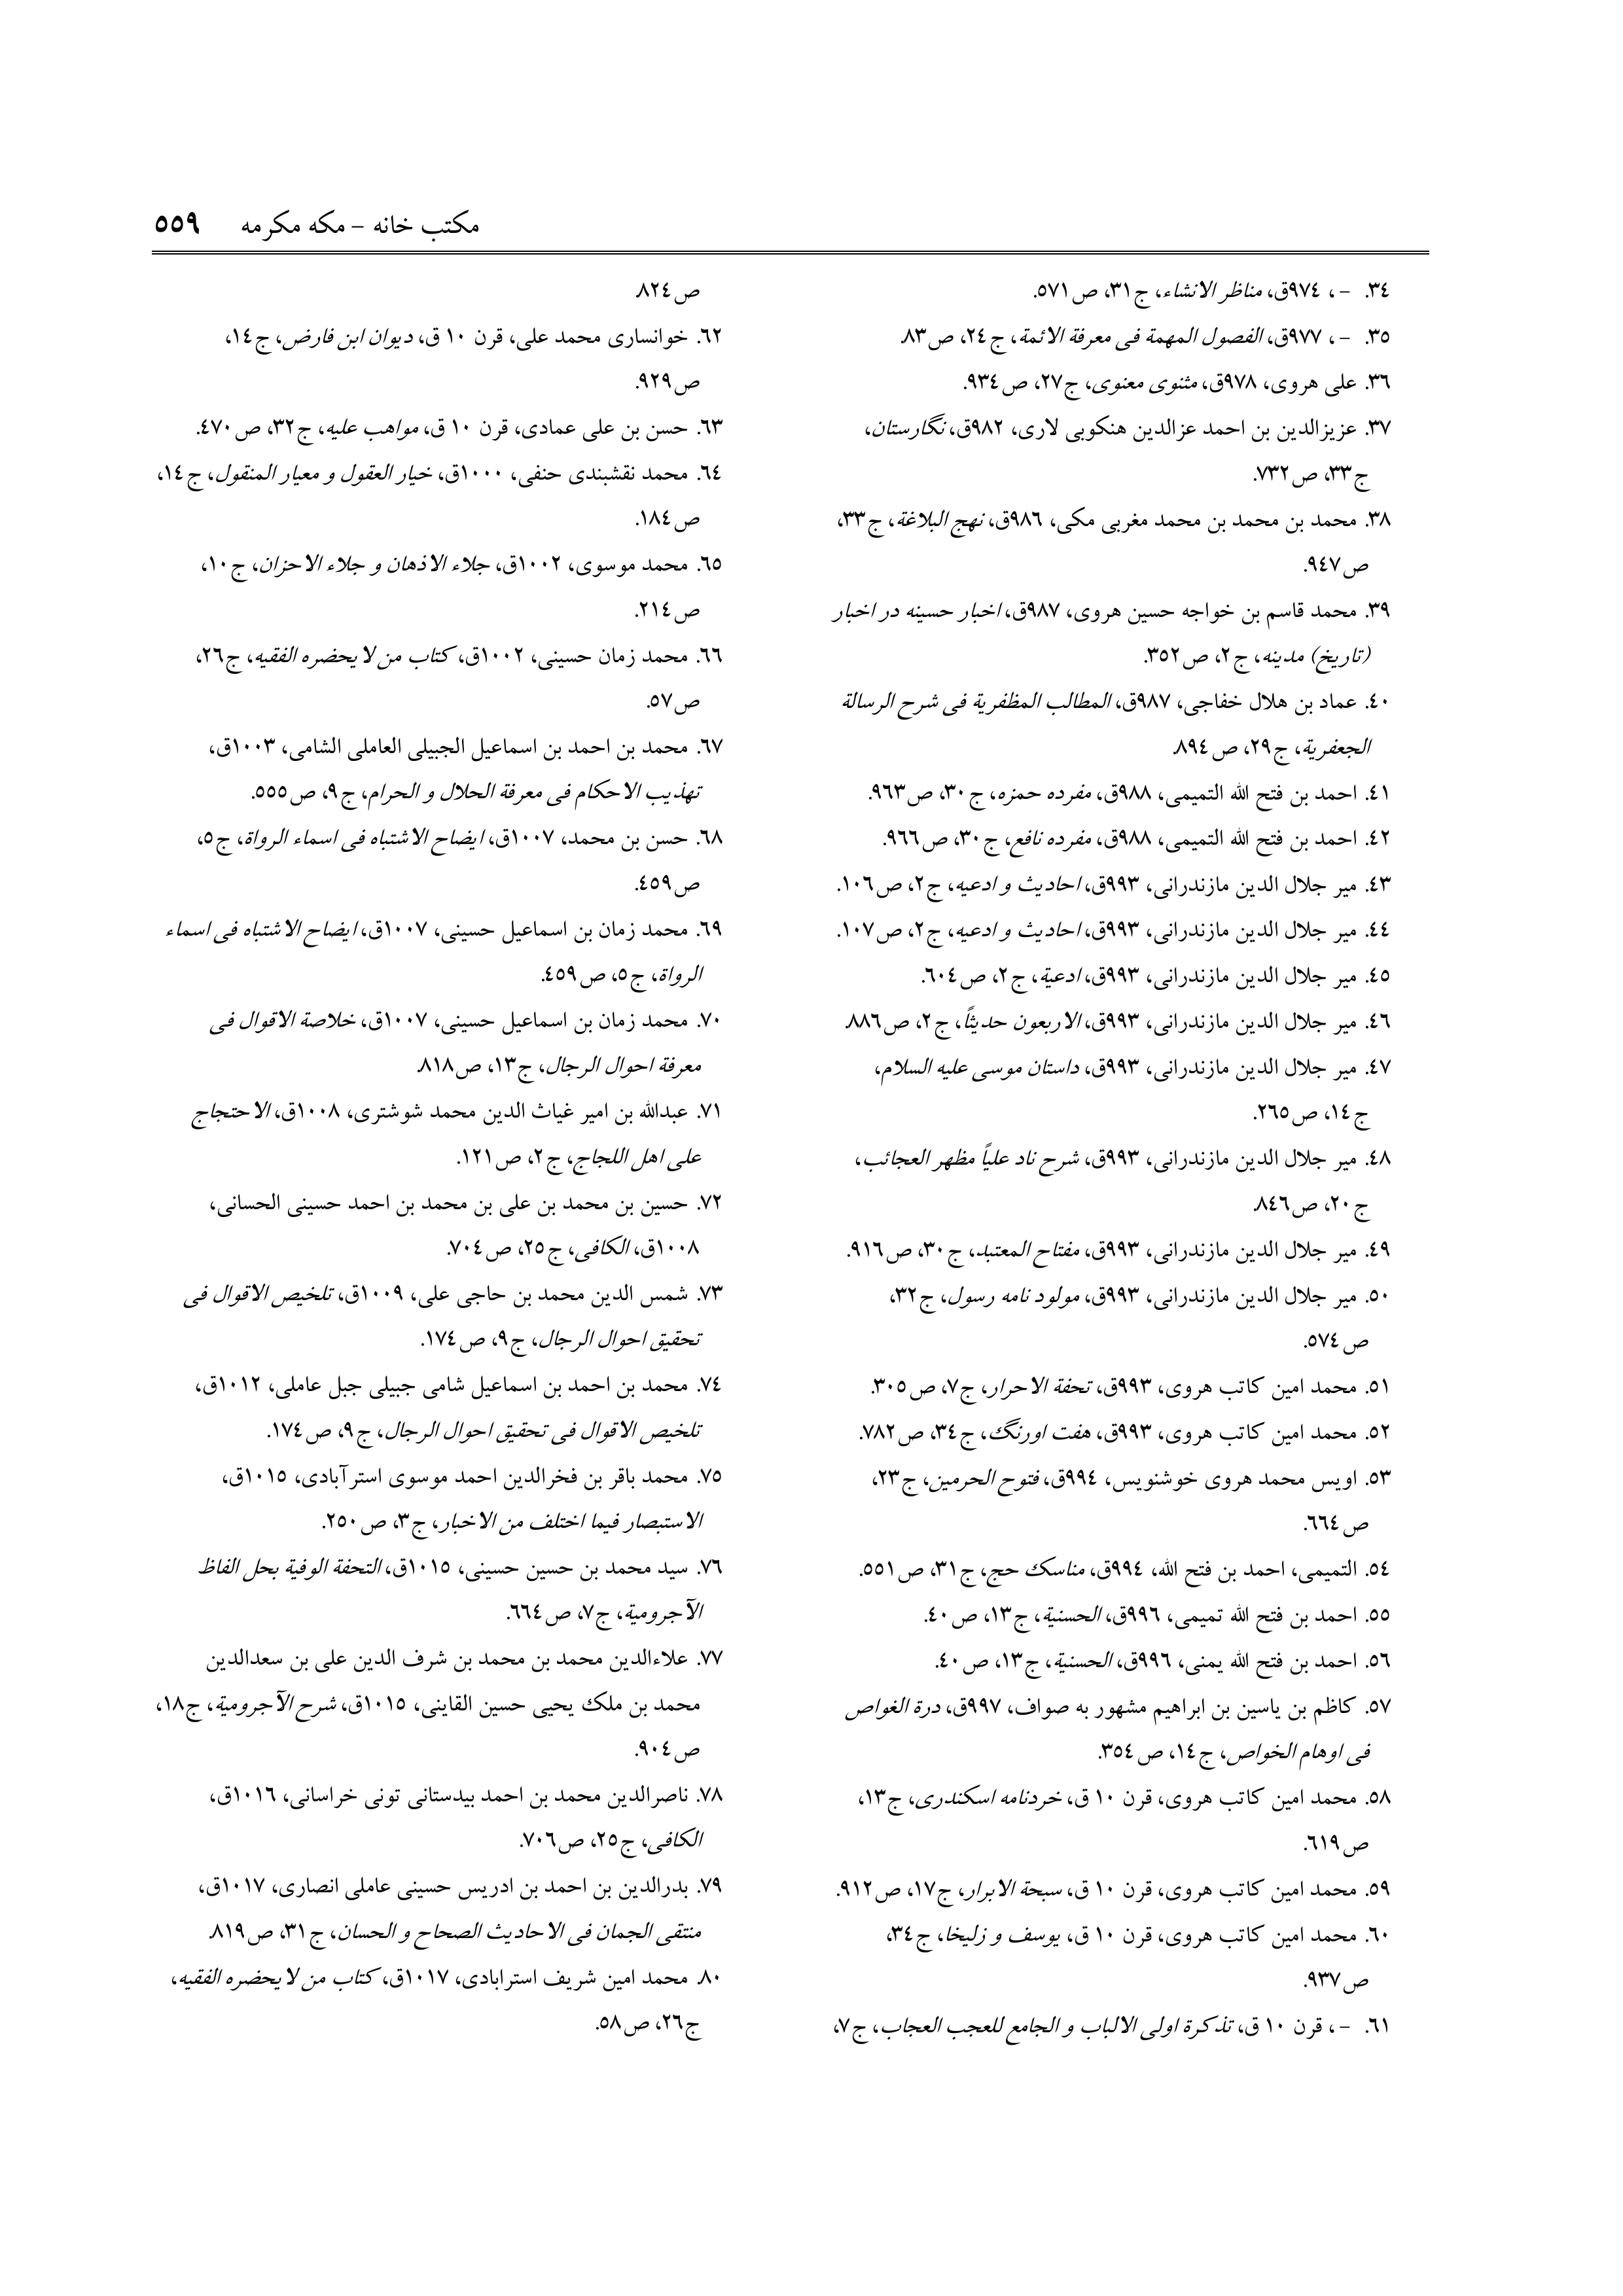 مکتب خانه – مکه مکرمه ٥٥٩
٣٤. –، ٩٧٤ق، مناظر الانشاء، ج٣١، ص٥٧١.
٣٥. –، ٩٧٧ق، الفصول المهمة فی معرفة الائمة، ج٢٤، ص٨٣.
٣٦. علی هروی، ٩٧٨ق، مثنوی معنوی، ج٢٧، ص٩٣٤.
٣٧. عزیزالدین بن احمد عزالدین هنکوبی لاری، ٩٨٢ق، نگارستان،
ج٣٣، ص٧٣٢.
٣٨. محمد بن محمد بن محمد مغربی مکی، ٩٨٦ق، نهج البلاغة، ج٣٣،
ص٩٤٧.
٣٩. محمد قاسم بن خواجه حسین هروی، ٩٨٧ق، اخبار حسینه در اخبار
(تاریخ) مدینه، ج٢، ص٣٥٢.
٤٠. عماد بن هلال خفاجی، ٩٨٧ق، المطالب المظفریة فی شرح الرسالة
الجعفریة، ج٢٩، ص٨٩٤.
٤١. احمد بن فتح الله التمیمی، ٩٨٨ق، مفرده حمزه، ج٣٠، ص٩٦٣.
٤٢. احمد بن فتح الله التمیمی، ٩٨٨ق، مفرده نافع، ج٣٠، ص٩٦٦.
٤٣. میر جلال الدین مازندرانی، ٩٩٣ق، احادیث و ادعیه، ج٢، ص١٠٦.
٤٤. میر جلال الدین مازندرانی، ٩٩٣ق، احادیث و ادعیه، ج٢، ص١٠٧.
٤٥. میر جلال الدین مازندرانی، ٩٩٣ق، ادعیة، ج٢، ص٦٠٤.
٤٦. میر جلال الدین مازندرانی، ٩٩٣ق، الاربعون حدیثاً، ج٢، ص٨٨٦.
٤٧. میر جلال الدین مازندرانی، ٩٩٣ق، داستان موسی علیه السلام،
ج١٤، ص٢٦٥.
٤٨. میر جلال الدین مازندرانی، ٩٩٣ق، شرح ناد علیاً مظهر العجائب،
ج٢٠، ص٨٤٦.
٤٩. میر جلال الدین مازندرانی، ٩٩٣ق، مفتاح المعتبد، ج٣٠، ص٩١٦.
٥٠. میر جلال الدین مازندرانی، ٩٩٣ق، مولود نامه رسول، ج٣٢،
ص٥٧٤.
٥١. محمد امین کاتب هروی، ٩٩٣ق، تحفة الاحرار، ج٧، ص٣٠٥.
٥٢. محمد امین کاتب هروی، ٩٩٣ق، هفت اورنگ، ج٣٤، ص٧٨٢.
٥٣. اویس محمد هروی خوشنویس، ٩٩٤ق، فتوح الحرمین، ج٢٣،
ص٦٦٤.
٥٤. التمیمی، احمد بن فتح الله، ٩٩٤ق، مناسک حج، ج٣١، ص٥٥١.
٥٥. احمد بن فتح الله تمیمی، ٩٩٦ق، الحسنیة، ج١٣، ص٤٠.
٥٦. احمد بن فتح الله یمنی، ٩٩٦ق، الحسنیة، ج١٣، ص٤٠.
٥٧. کاظم بن یاسین بن ابراهیم مشهور به صواف، ٩٩٧ق، درة الغواص
فی اوهام الخواص، ج١٤، ص٣٥٤.
٥٨. محمد امین کاتب هروی، قرن ١٠ ق، خردنامه اسکندری، ج١٣،
ص٦١٩.
٥٩. محمد امین کاتب هروی، قرن ١٠ ق، سبحة الابرار، ج١٧، ص٩١٢.
٦٠. محمد امین کاتب هروی، قرن ١٠ ق، یوسف و زلیخا، ج٣٤،
ص٩٣٧.
٦١. –، قرن ١٠ ق، تذکرة اولی الالباب و الجامع للعجب العجاب، ج٧،
ص٨٢٤.
٦٢. خوانساری محمد علی، قرن ١٠ ق، دیوان ابن فارض، ج١٤،
ص٩٢٩.
٦٣. حسن بن علی عمادی، قرن ١٠ ق، مواهب علیه، ج٣٢، ص٤٧٠.
٦٤. محمد نقشبندی حنفی، ١٠٠٠ق، خیار العقول و معیار المنقول، ج١٤،
ص١٨٤.
٦٥. محمد موسوی، ١٠٠٢ق، جلاء الاذهان و جلاء الاحزان، ج١٠،
ص٢١٤.
٦٦. محمد زمان حسینی، ١٠٠٢ق، کتاب من لا یحضره الفقیه، ج٢٦،
ص٥٧.
٦٧. محمد بن احمد بن اسماعیل الجبیلی العاملی الشامی، ١٠٠٣ق،
تهذیب الاحکام فی معرفة الحلال و الحرام، ج٩، ص٥٥٥.
٦٨. حسن بن محمد، ١٠٠٧ق، ایضاح الاشتباه فی اسماء الرواة، ج٥،
ص٤٥٩.
٦٩. محمد زمان بن اسماعیل حسینی، ١٠٠٧ق، ایضاح الاشتباه فی اسماء
الرواة، ج٥، ص٤٥٩.
٧٠. محمد زمان بن اسماعیل حسینی، ١٠٠٧ق، خلاصة الاقوال فی
معرفة احوال الرجال، ج١٣، ص٨١٨.
٧١. عبدالله بن امیر غیاث الدین محمد شوشتری، ١٠٠٨ق، الاحتجاج
علی اهل اللجاج، ج٢، ص١٢١.
٧٢. حسین بن محمد بن علی بن محمد بن احمد حسینی الحسانی،
١٠٠٨ق، الکافی، ج٢٥، ص٧٠٤.
٧٣. شمس الدین محمد بن حاجی علی، ١٠٠٩ق، تلخیص الاقوال فی
تحقیق احوال الرجال، ج٩، ص١٧٤.
٧٤. محمد بن احمد بن اسماعیل شامی جبیلی جبل عاملی، ١٠١٢ق،
تلخیص الاقوال فی تحقیق احوال الرجال، ج٩، ص١٧٤.
٧٥. محمد باقر بن فخرالدین احمد موسوی استرآبادی، ١٠١٥ق،
الاستبصار فیما اختلف من الاخبار، ج٣، ص٢٥٠.
٧٦. سید محمد بن حسین حسینی، ١٠١٥ق، التحفة الوفیة بحل الفاظ
الآجرومیة، ج٧، ص٦٦٤.
٧٧. علاءالدین محمد بن محمد بن شرف الدین علی بن سعدالدین
محمد بن ملک یحیی حسین القاینی، ١٠١٥ق، شرح الآجرومیة، ج١٨،
ص٩٠٤.
٧٨. ناصرالدین محمد بن احمد بیدستانی تونی خراسانی، ١٠١٦ق،
الکافی، ج٢٥، ص٧٠٦.
٧٩. بدرالدین بن احمد بن ادریس حسینی عاملی انصاری، ١٠١٧ق،
منتقی الجمان فی الاحادیث الصحاح و الحسان، ج٣١، ص٨١٩.
٨٠. محمد امین شریف استرابادی، ١٠١٧ق، کتاب من لا یحضره الفقیه،
ج٢٦، ص٥٨.